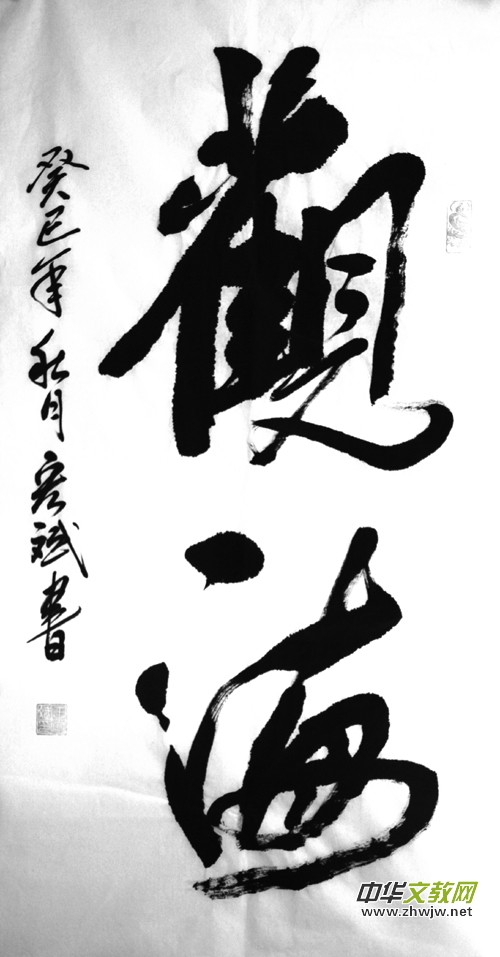 觀海
癸巳年秋月彦斌書
中华文教网
www.zhwjw.net